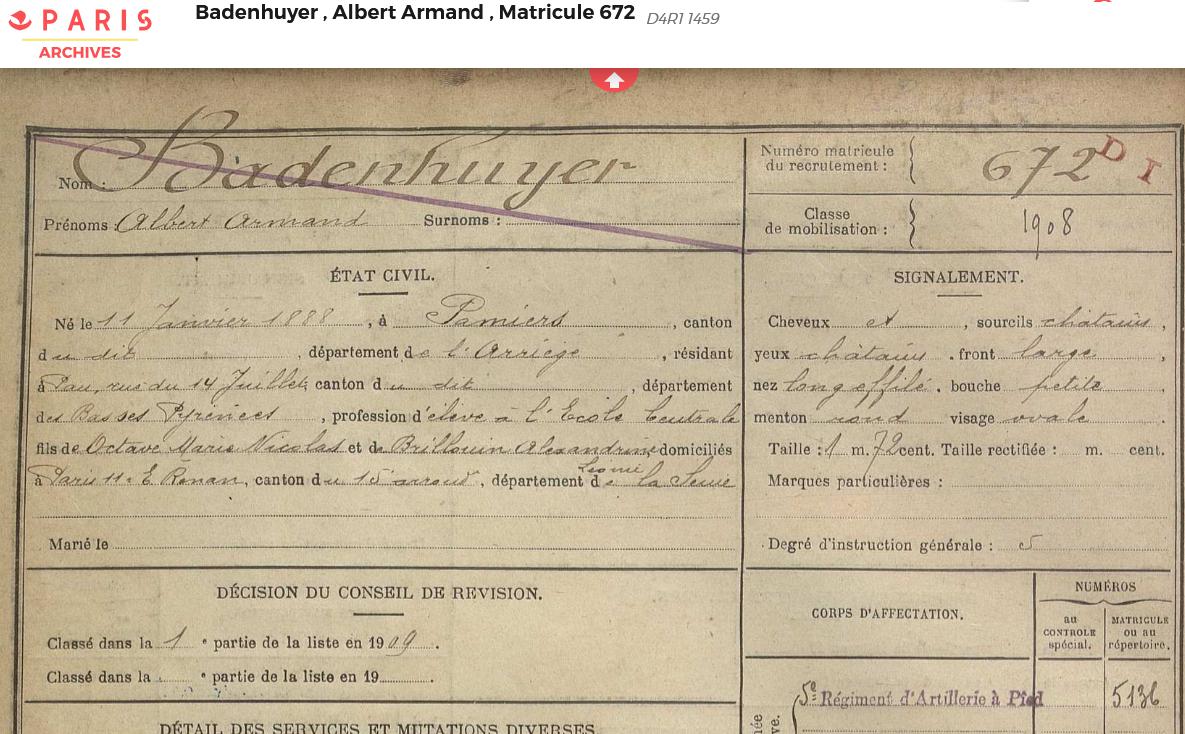 PARIS
ARCHIVES
Badenhuyer , Albert Armand , Matricule 672 D4R1 1459
Nom : Badenhuyer
Prénoms : Albert Armand Surnoms :
Numéro matricule du recrutement : 672 D I
Classe de mobilisation : 1908
ÉTAT CIVIL.
Né le 11 Janvier 1888, à Pamiers, canton
du dit, département de l'Arriège, résidant
à Pau, rue du 14 Juillet, canton du dit, département
des Basses Pyrénées, profession d'élève à l'Ecole Centrale
fils de Octave Marie Nicolas et de Brillouin Alexandrine domiciliés
Leonie
à Paris 11 r. E Renan, canton du 15 arrond, département de la Seine
Marié le
SIGNALEMENT.
Cheveux et, sourcils chatains,
yeux chatains. front large,
nez long effilé. bouche petite,
menton rond visage ovale.
Taille : 1 m. 72 cent. Taille rectifiée : m. cent.
Marques particulières :
Degré d'instruction générale : 5
DÉCISION DU CONSEIL DE REVISION.
Classé dans la 1e partie de la liste en 1909.
Classé dans la e partie de la liste en 19 .
DÉTAIL DES SERVICES ET MUTATIONS DIVERSES
CORPS D'AFFECTATION.
NUMÉROS
au CONTROLE spécial.
MATRICULE ou au répertoire.
5e Régiment d'Artillerie à Pied 5136